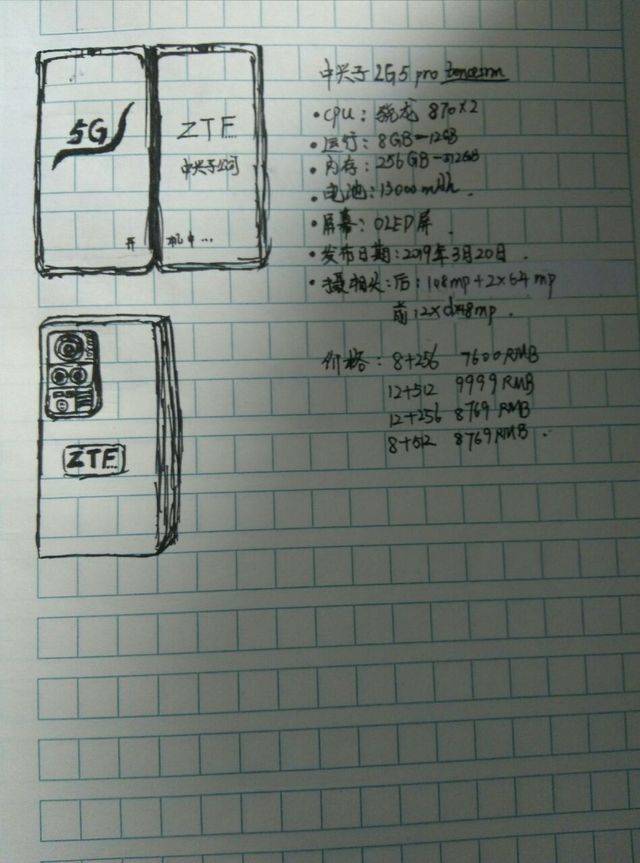 5G
ZTE
中兴子公司
开机中...
ZTE
中兴子2G5 pro
·CPU：骁龙 870×2
·运行：8GB-12GB
·内存：256GB-512GB
·电池：13000mAh.
·屏幕：OLED屏.
·发布日期：2019年3月20日.
·摄相头：后：108mp+2×64mp
前12×48mp.
价格：8+256 7600RMB
12+512 9999RMB
12+256 8769RMB
8+512 8769RMB.